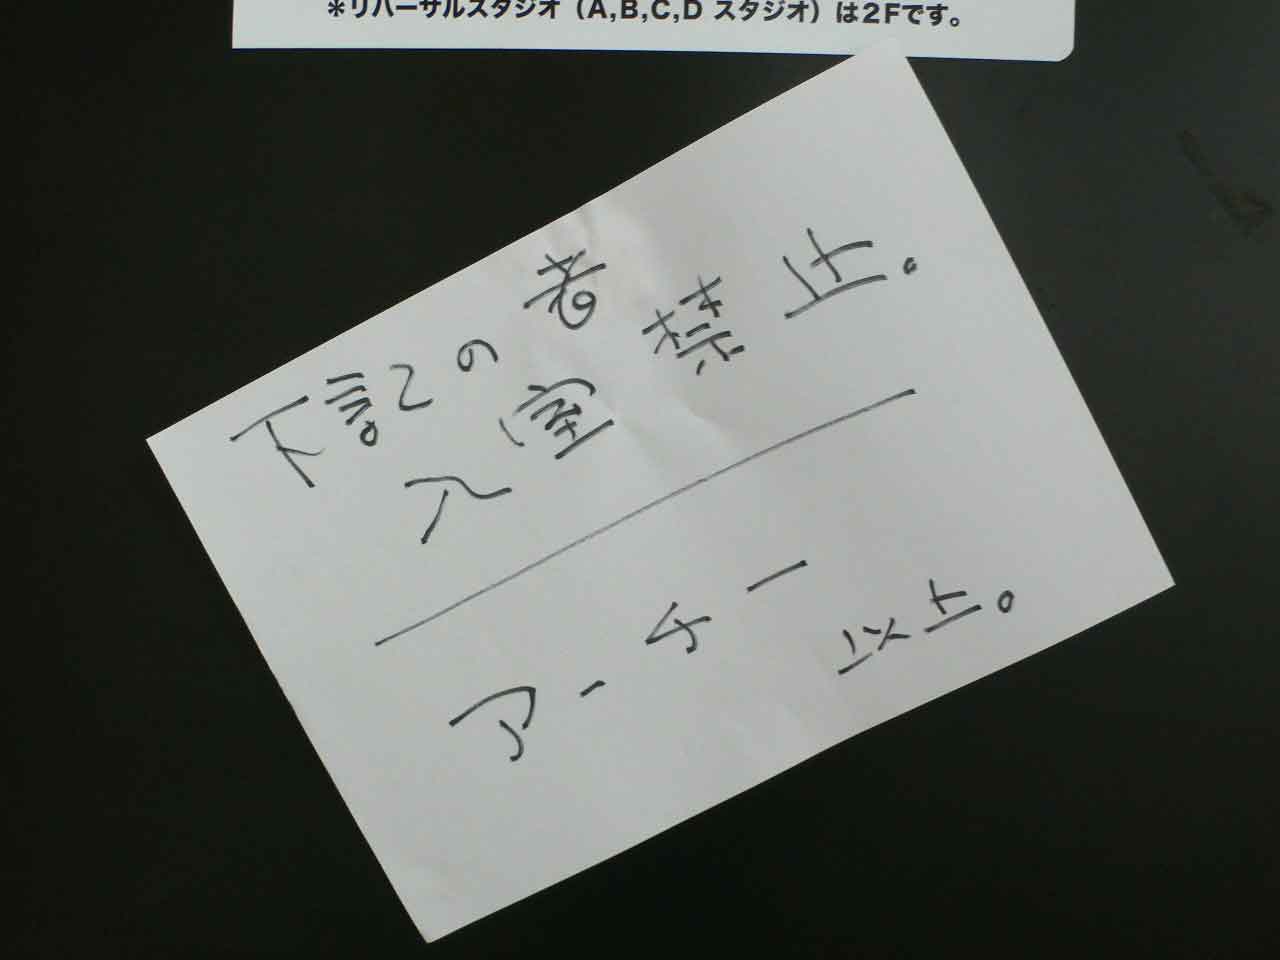 ＊リハーサルスタジオ（A,B,C,D スタジオ）は2Fです。
下記の者
入室禁止。
アーチー
以上。